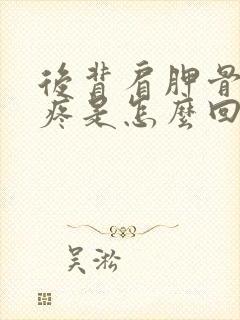 後背肩胛骨
疼是怎麼回
吴淞